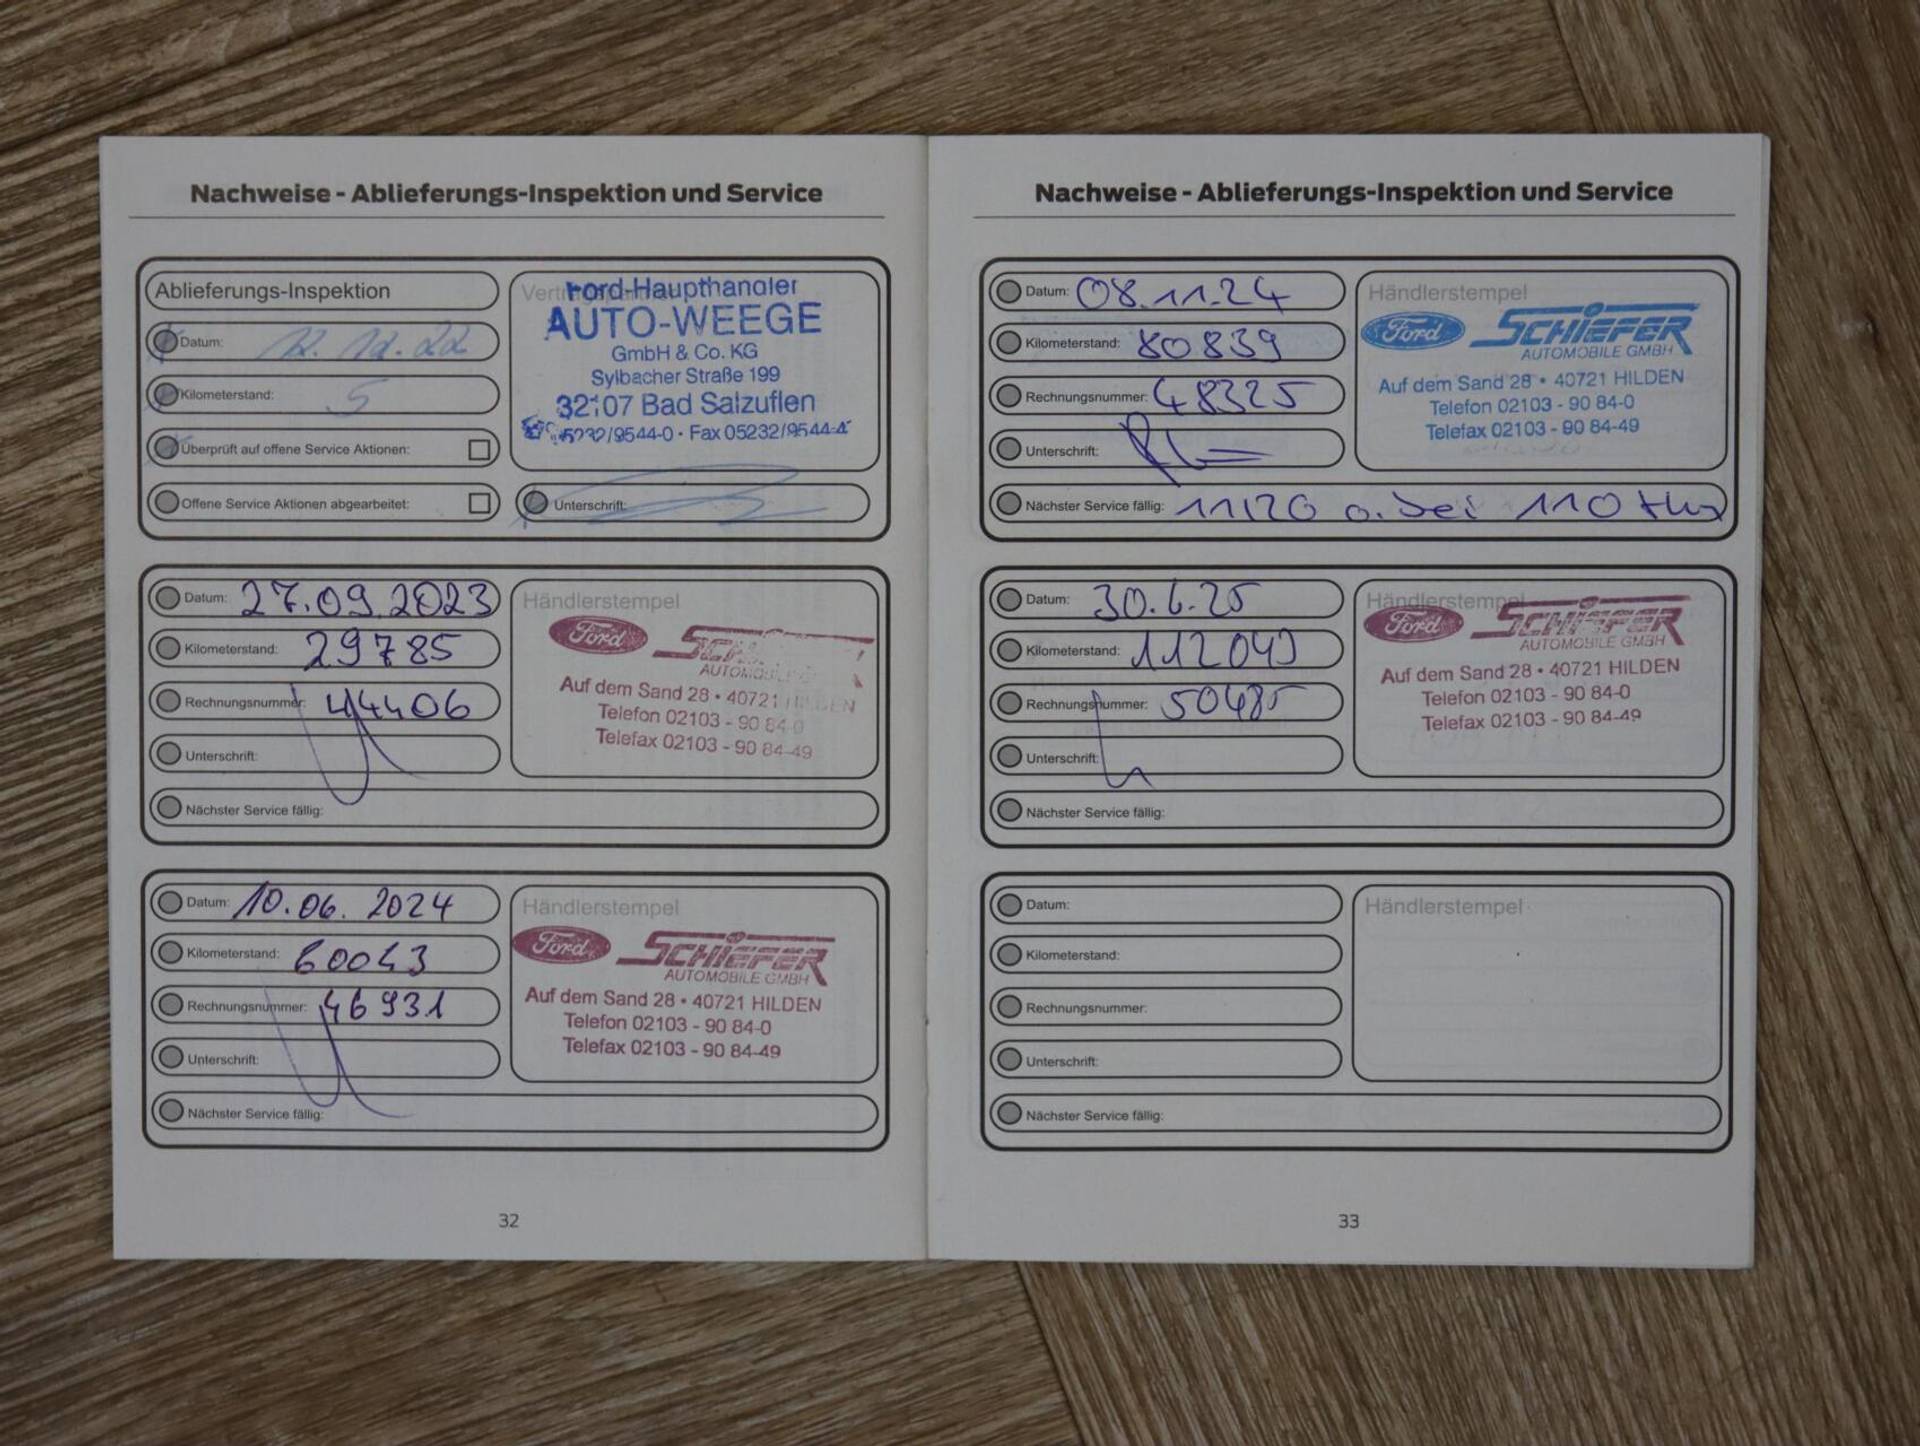 Nachweise - Ablieferungs-Inspektion und Service
Ablieferungs-Inspektion
Datum: 12.12.22
Kilometerstand: 5
Überprüft auf offene Service Aktionen:
Offene Service Aktionen abgearbeitet:
Ford-Haupthändler
AUTO-WEEGE
GmbH & Co. KG
Sylbacher Straße 199
32107 Bad Salzuflen
05232/9544-0 · Fax 05232/9544-4
Unterschrift:
Datum: 27.09.2023
Kilometerstand: 29785
Rechnungsnummer: 44406
Unterschrift:
Nächster Service fällig:
Händlerstempel
Ford SCHIEFER
AUTOMOBILE GMBH
Auf dem Sand 28 • 40721 HILDEN
Telefon 02103 - 90 84-0
Telefax 02103 - 90 84-49
Datum: 10.06.2024
Kilometerstand: 60043
Rechnungsnummer: 46931
Unterschrift:
Nächster Service fällig:
Händlerstempel
Ford SCHIEFER
AUTOMOBILE GMBH
Auf dem Sand 28 • 40721 HILDEN
Telefon 02103 - 90 84-0
Telefax 02103 - 90 84-49
32
Nachweise - Ablieferungs-Inspektion und Service
Datum: 08.11.24
Kilometerstand: 80839
Rechnungsnummer: 48325
Unterschrift:
Nächster Service fällig: 11/26 o. bei 110 tkm
Händlerstempel
Ford SCHIEFER
AUTOMOBILE GMBH
Auf dem Sand 28 • 40721 HILDEN
Telefon 02103 - 90 84-0
Telefax 02103 - 90 84-49
Datum: 30.6.25
Kilometerstand: 112049
Rechnungsnummer: 50485
Unterschrift:
Nächster Service fällig:
Händlerstempel
Ford SCHIEFER
AUTOMOBILE GMBH
Auf dem Sand 28 • 40721 HILDEN
Telefon 02103 - 90 84-0
Telefax 02103 - 90 84-49
Datum:
Kilometerstand:
Rechnungsnummer:
Unterschrift:
Nächster Service fällig:
Händlerstempel
33